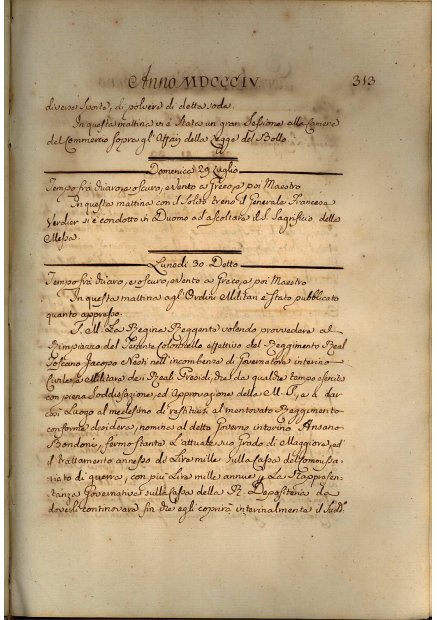 Anno MDCCCIV 313
diverse Sporte, di polvere di detta soda.
In questa mattina vi è stata un gran Sessione alla Camera
del Commercio sopra gl'Affari della Legge del Bollo
Domenica 29 Luglio
Tempo frà chiaro, e oscuro, e Vento a Greco, e poi Maestro
In questa mattina con il solito treno il Generale Francese
Verdier si è condotto in Duomo ad ascoltare il S. Sagrifizio della
Messa.
Lunedi 30. Detto
Tempo frà chiaro, e oscuro, e Vento a Greco, e poi Maestro
In questa mattina agl'Ordini Militari è stato pubblicato
quanto appresso.
S. M. La Regina Reggente volendo provvedere al
Rimpiazzo del Tenente Colonnello effettivo del Reggimento Real
Toscano Jacopo Nesti nell'incombenza di Governatore interino
Civile, e Militare dei Reali Presidi, che da qualche tempo esercita
con piena Soddisfazione, ed Approvazione della M. S., e a dar
così Luogo al medesimo di restituirsi al mentovato Reggimento
conforme desidera, nomina al detto Governo interino Ansano
Bondoni, fermo stante L'attuale suo Grado di Maggiore, ed
il trattamento annesso di Lire mille sulla Cassa del Commissa-
riato di guerra, con più Lire mille annue p. La Rappresen-
tanza Governativa sulla Cassa della R. Depositeria da
doversli continovare fin che egli coprirà interinalmente il Sudd.º